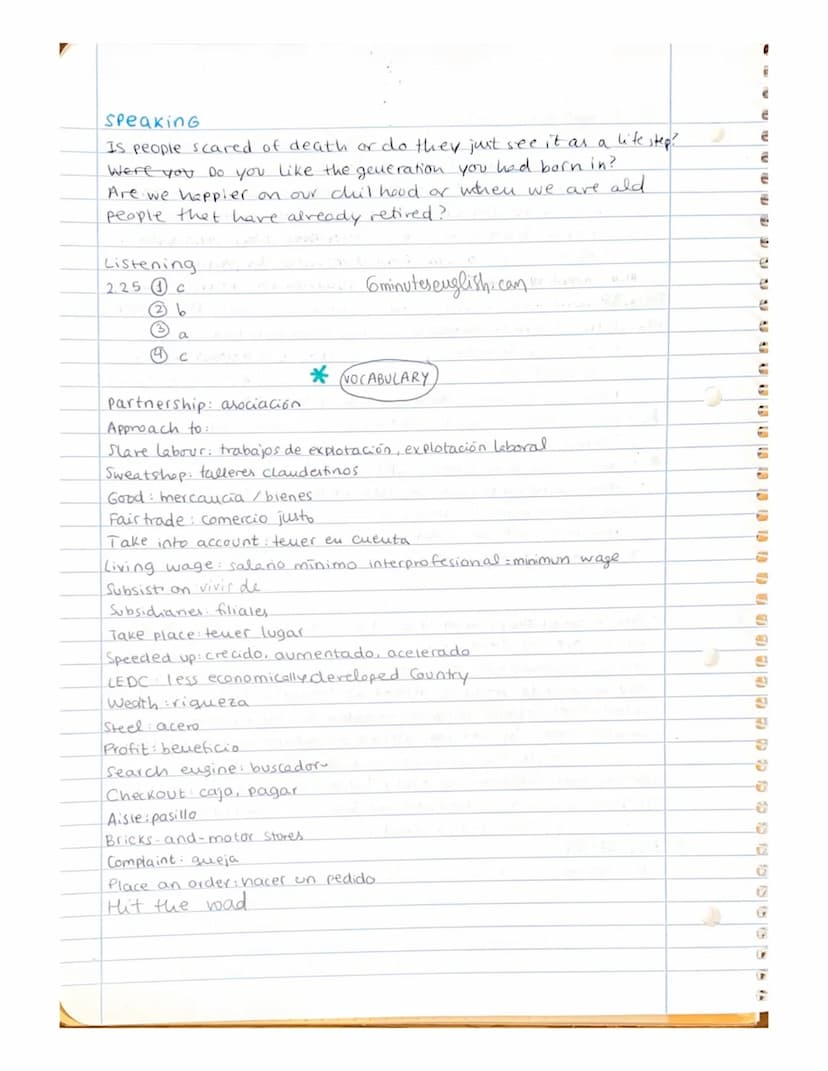 Speaking
Is people scared of death or do they just see it as a life step?
Were you Do you like the generation you had born in?
Are we happier on our chilhood or when we are old
people that have already retired?
Listening
2.25 ① c 6minutesenglish.com
② b
③ a
④ c
* VOCABULARY
Partnership: asociación
Approach to:
Slave labour: trabajos de explotación, explotación laboral
Sweatshop: talleres clandestinos
Good: mercancía / bienes
Fair trade: comercio justo
Take into account: tener en cuenta
Living wage: salario mínimo interprofesional = minimun wage
Subsist on vivir de
Subsidiaries: filiales
Take place: tener lugar
Speeded up: crecido, aumentado, acelerado
LEDC: less economically developed Country
Wealth: riqueza
Steel: acero
Profit: beneficio
Search engine: buscador
Checkout: caja, pagar
Aisle: pasillo
Bricks-and-motor stores
Complaint: queja
Place an order: hacer un pedido
Hit the road